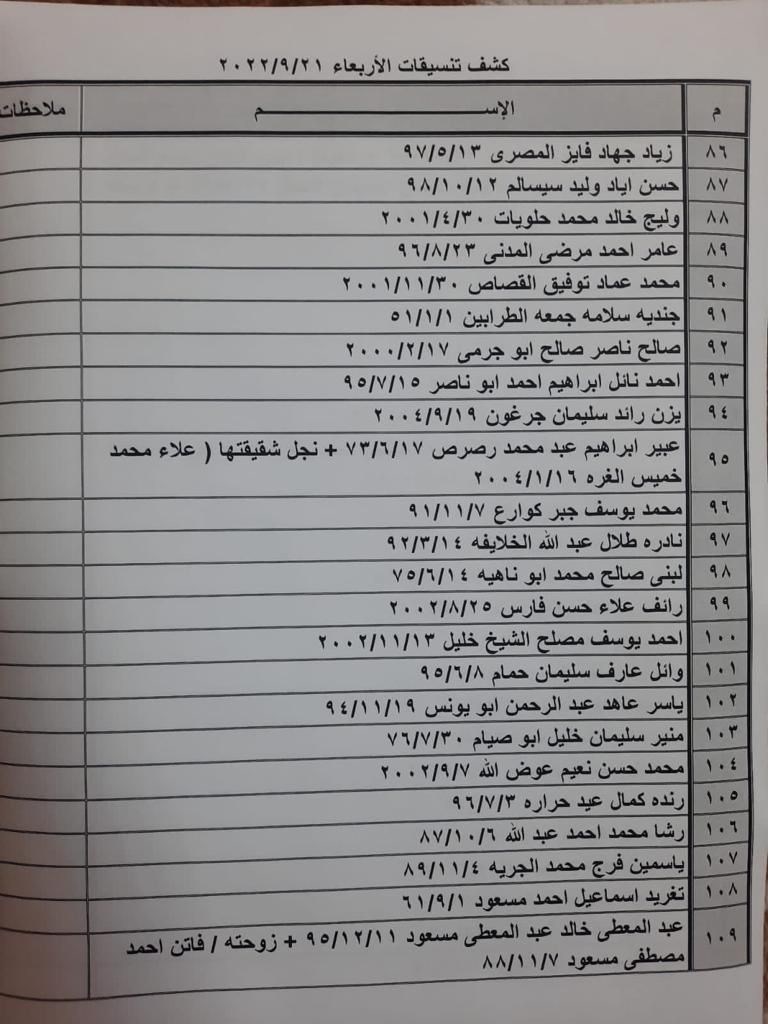 كشف تنسيقات الأربعاء ٢٠٢٢/٩/٢١
م الإســـــــــــــــــــــم ملاحظات
٨٦ زياد جهاد فايز المصرى ٩٧/٥/١٣
٨٧ حسن اياد وليد سيسالم ٩٨/١٠/١٢
٨٨ وليج خالد محمد حلويات ٢٠٠١/٤/٣٠
٨٩ عامر احمد مرضى المدنى ٩٦/٨/٢٣
٩٠ محمد عماد توفيق القصاص ٢٠٠١/١١/٣٠
٩١ جنديه سلامه جمعه الطرابين ٥١/١/١
٩٢ صالح ناصر صالح ابو جرمى ٢٠٠٠/٢/١٧
٩٣ احمد نائل ابراهيم احمد ابو ناصر ٩٥/٧/١٥
٩٤ يزن رائد سليمان جرغون ٢٠٠٤/٩/١٩
٩٥ عبير ابراهيم عبد محمد رصرص ٧٣/٦/١٧ + نجل شقيقتها ( علاء محمد
خميس الغره ٢٠٠٤/١/١٦
٩٦ محمد يوسف جبر كوارع ٩١/١١/٧
٩٧ نادره طلال عبد الله الخلايفه ٩٢/٣/١٤
٩٨ لبنى صالح محمد ابو ناهيه ٧٥/٦/١٤
٩٩ رائف علاء حسن فارس ٢٠٠٢/٨/٢٥
١٠٠ احمد يوسف مصلح الشيخ خليل ٢٠٠٢/١١/١٣
١٠١ وائل عارف سليمان حمام ٩٥/٦/٨
١٠٢ ياسر عاهد عبد الرحمن ابو يونس ٩٤/١١/١٩
١٠٣ منير سليمان خليل ابو صيام ٧٦/٧/٣٠
١٠٤ محمد حسن نعيم عوض الله ٢٠٠٢/٩/٧
١٠٥ رنده كمال عيد حراره ٩٦/٧/٣
١٠٦ رشا محمد احمد عبد الله ٨٧/١٠/٦
١٠٧ ياسمين فرج محمد الجريه ٨٩/١١/٤
١٠٨ تغريد اسماعيل احمد مسعود ٦١/٩/١
١٠٩ عبد المعطى خالد عبد المعطى مسعود ٩٥/١٢/١١ + زوحته / فاتن احمد
مصطفى مسعود ٨٨/١١/٧